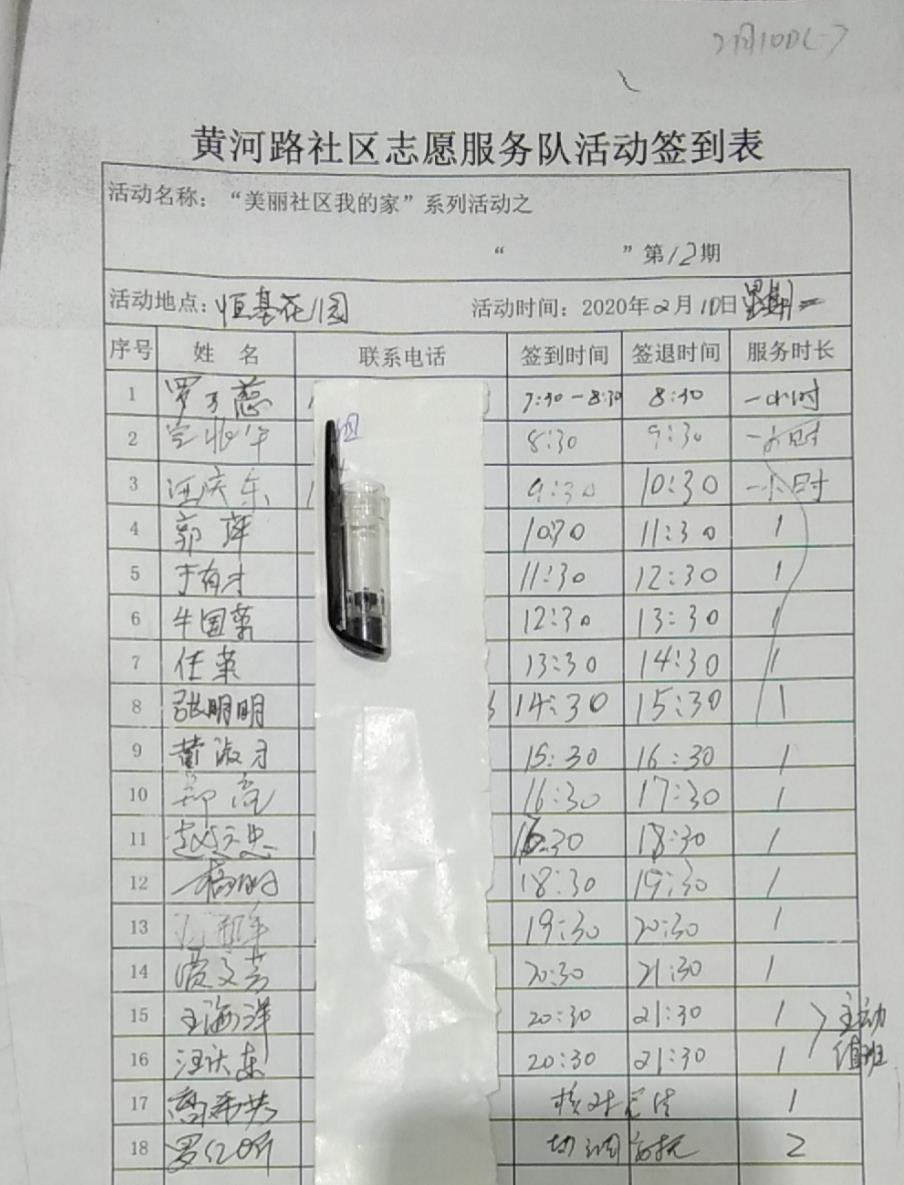 2月10日(一)
黄河路社区志愿服务队活动签到表
活动名称：“美丽社区我的家”系列活动之
“ ”第12期
活动地点：恒基花园 活动时间：2020年2月10日星期一
序号 姓名 联系电话 签到时间 签退时间 服务时长
1 罗 蕊 7:30-8:30 8:30 一小时
2 8:30 9:30 一小时
3 汪庆东 9:30 10:30 一小时
4 郭萍 10:30 11:30 1
5 于有才 11:30 12:30 1
6 牛国菊 12:30 13:30 1
7 任革 13:30 14:30 1
8 张明明 14:30 15:30 1
9 黄淑 15:30 16:30 1
10 郑亮 16:30 17:30 1
11 赵 忠 :30 18:30 1
12 杨明 18:30 19:30 1
13 19:30 20:30 1
14 贾文芳 20:30 21:30 1
15 王海洋 20:30 21:30 1 主动
16 汪庆东 20:30 21:30 1 值班
17 核对 1
18 罗 协调 2